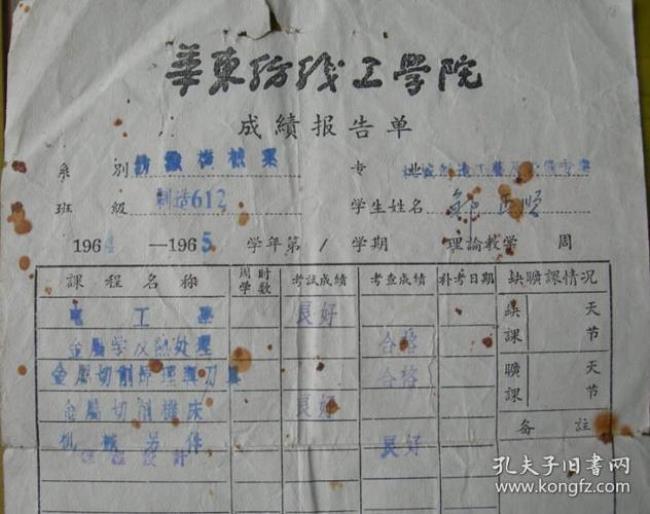 華東紡织工學院
成績报告单
系 别 紡織機械系 专 业 机械制造工藝及設備专業
班 級 制造612 学生姓名 正順
1964—1965 学年第1学期 理論教学 周
課程名称 周学时数 考試成績 考查成績 补考日期 缺曠課情况
電工學 良好 缺課 天 节
金屬学及熱处理 合格
金屬切削原理與刀具 合格 曠課 天 节
金屬切削機床 良好
机械另件 良好 备註
課程設計
孔夫子旧书网
www.kongfz.com